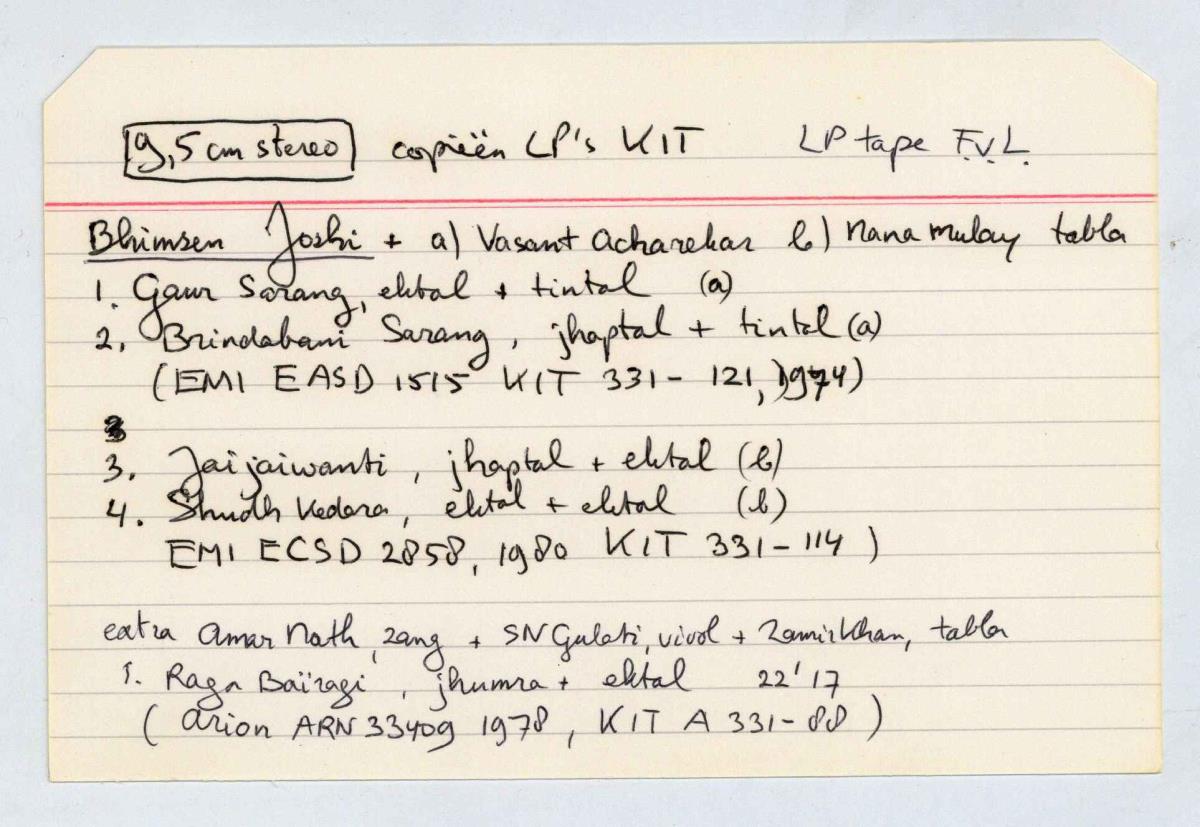 9,5 cm stereo copieën LP's KIT LP tape F.v.L.
Bhimsen Joshi + a) Vasant Acharekar b) Nana Mulay tabla
1. Gaur Sarang, ektal + tintal (a)
2. Brindabani Sarang, jhaptal + tintal (a)
(EMI EASD 1515 KIT 331-121, 1974)
3. Jaijaiwanti, jhaptal + ektal (b)
4. Shudh Kedara, ektal + ektal (b)
EMI ECSD 2858, 1980 KIT 331-114 )
extra Amar Nath, zang + SN Gulati, viool + Zamir Khan, tabla
1. Raga Baïragi, jhumra + ektal 22'17
( Arion ARN 33409 1978, KIT A 331-88 )